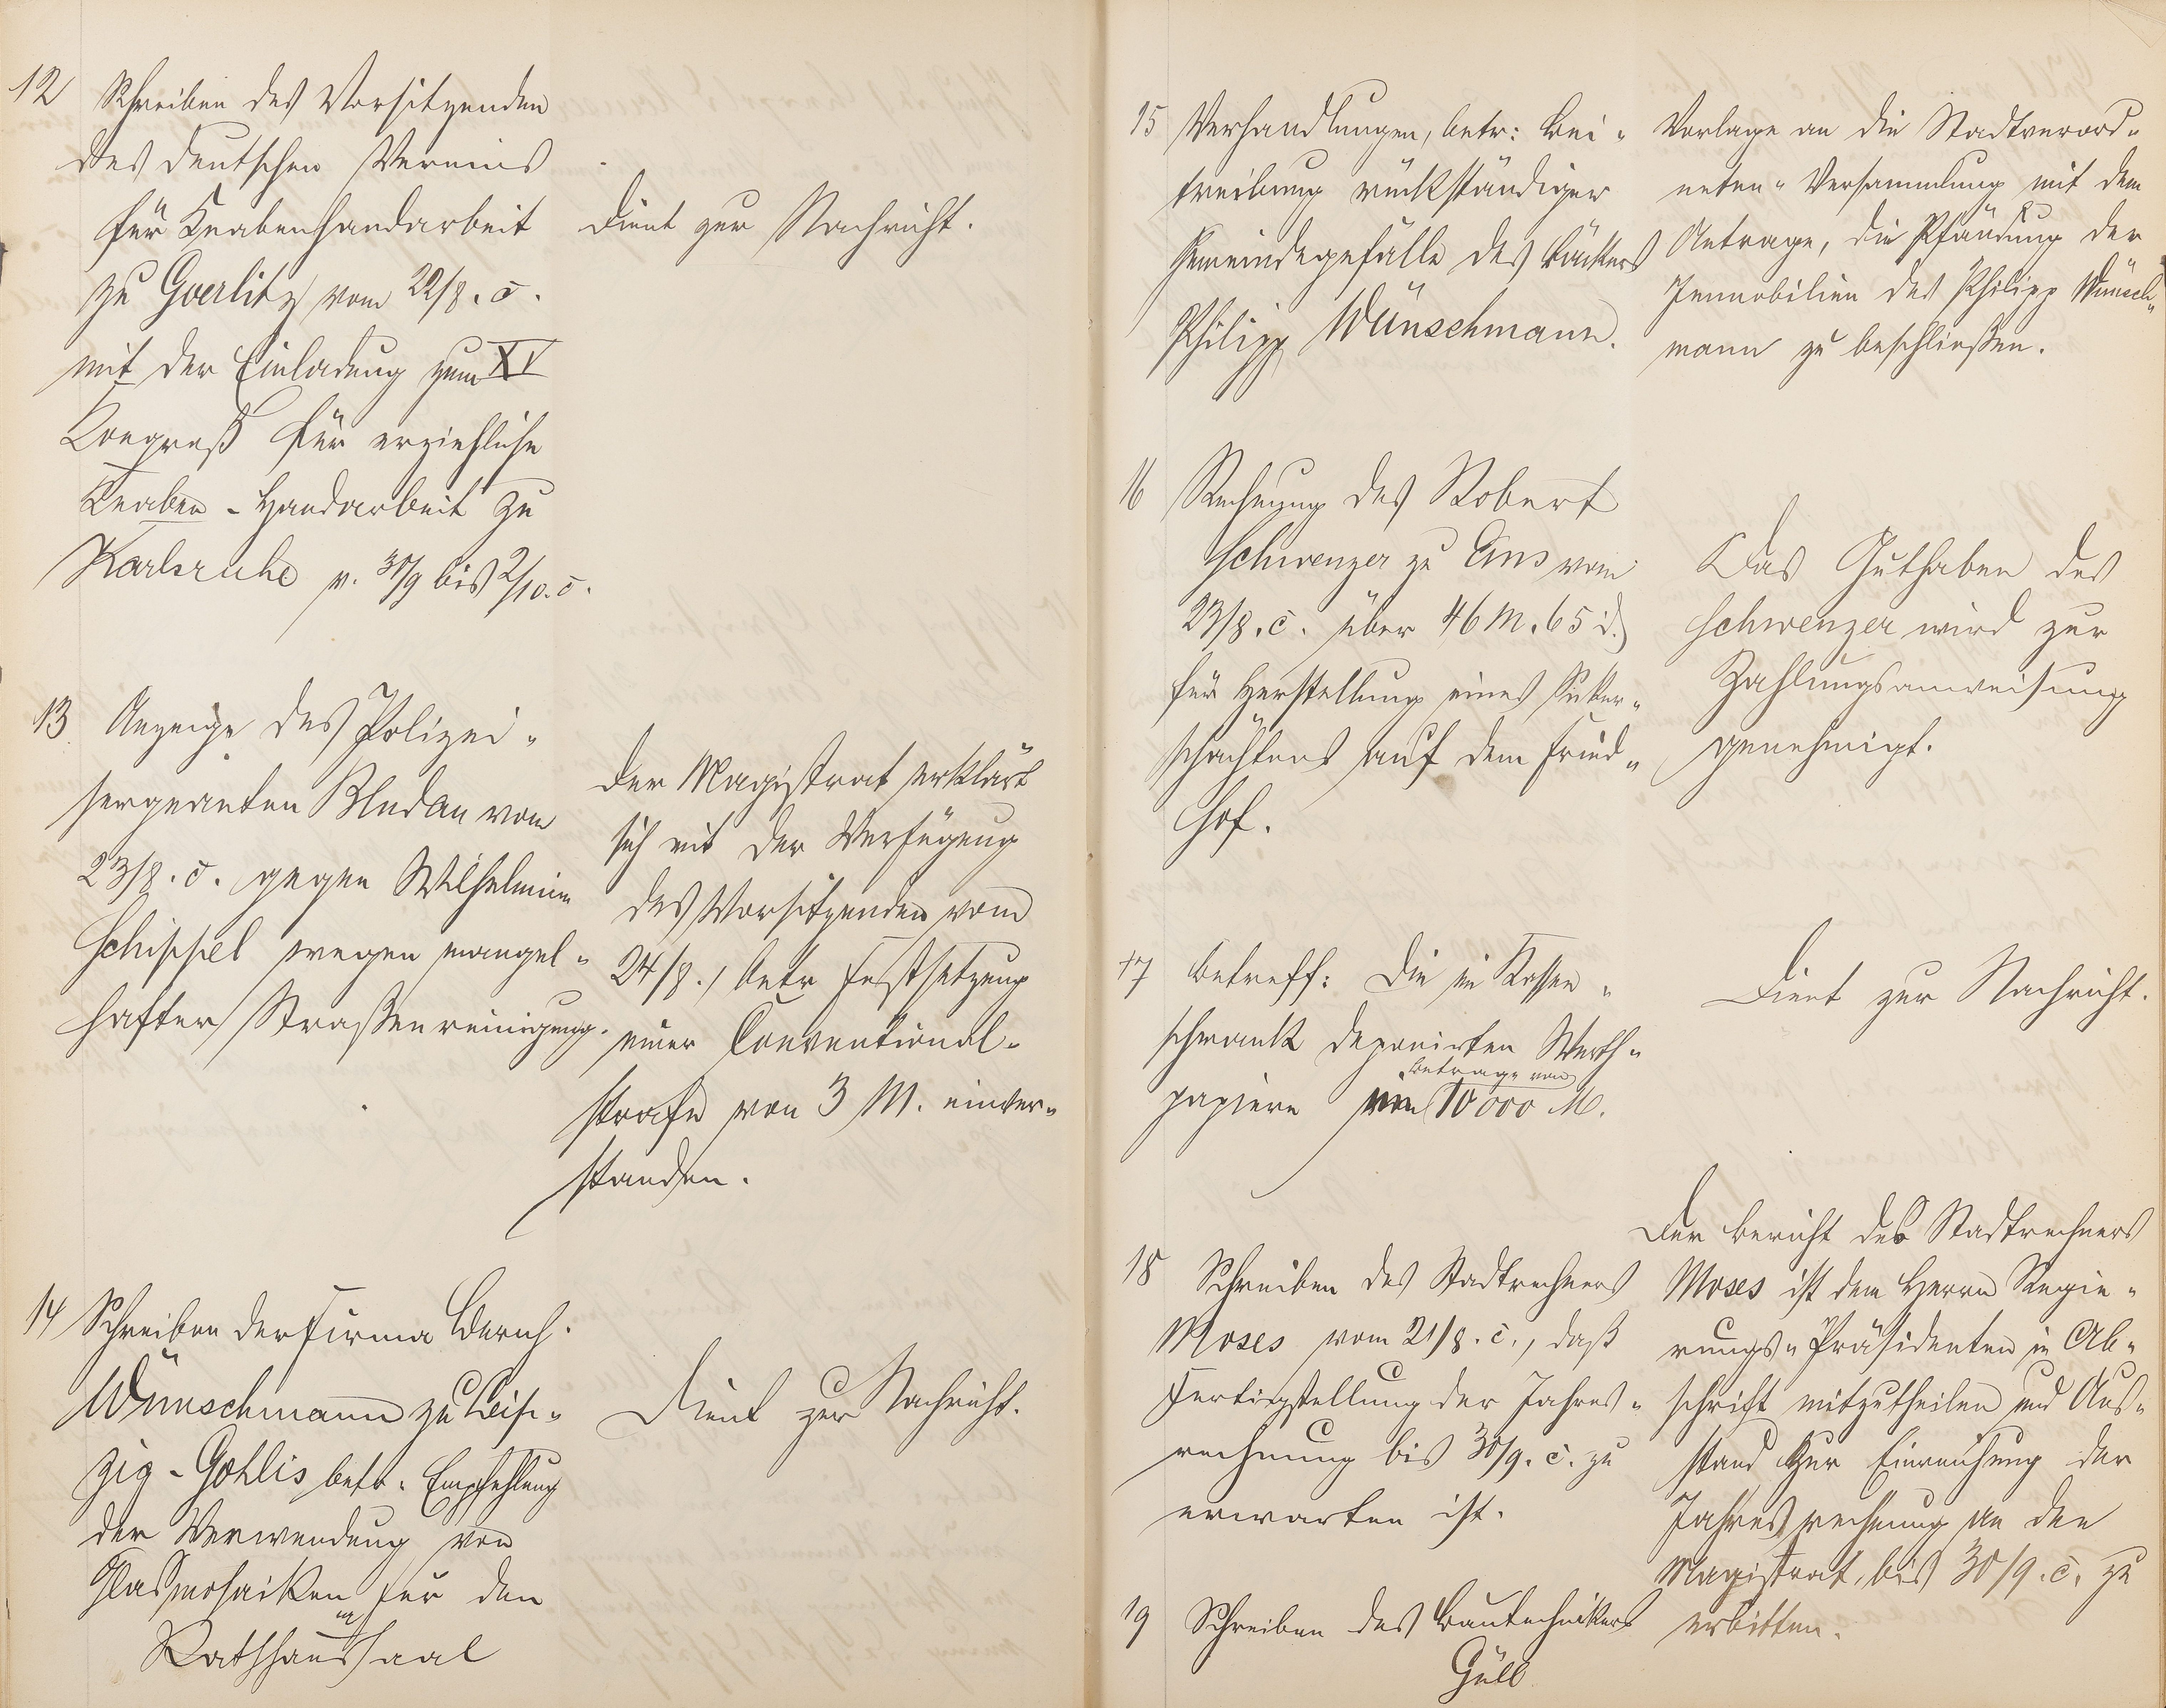 12 Schreiben des Vorsitzenden
des deutschen Vereins
für Knabenhandarbeit
zu Goerlitz vom 22/8. c.
mit der Einladung zum XV
Kongreß für erziehliche
Knaben-Handarbeit zu
Karlsruhe v. 30/9 bis 2/10. c.
Dient zur Nachricht.
13 Anzeige des Polizei-
sergeanten Bludau vom
23/8. c. gegen Wilhelmine
Schissel wegen mangel-
hafter Straßenreinigung.
Der Magistrat erklärt
sich mit der Verfügung
des Vorsitzenden vom
24/8., betr Festsetzung
einer Conventional-
strafe von 3 M. einver-
standen.
14 Schreiben der Firma Bernh.
Wünschmann zu Leip-
zig-Gohlis betr. Empfehlung
der Verwendung von
Glasmosaiken für den
Rathhaussaal
Dient zur Nachricht.
15 Verhandlungen, betr: Bei-
treibung rückständiger
Gemeindegefälle des Bäckers
Philipp Wünschmann.
Vorlage an die Stadtverord-
neten-Versammlung mit dem
Antrage, die Pfändung der
Immobilien des Philipp Wünsch-
mann zu beschließen.
16 Rechnung des Robert
Schwenzer zu Ems vom
23/8. c. über 46 M. 65 d.
für Herstellung eines Sicker-
schachtens auf dem Fried-
hof.
Das Guthaben des
Schwenzer wird zur
Zahlungsanweisung
genehmigt.
17 Betreff: Die im Kassen-
schrank deponirten Werth-
Betrage von
papiere von 10000 M.
Dient zur Nachricht.
18 Schreiben des Stadtrechners
Moses vom 21/8. c., daß
Fertigstellung der Jahres-
rechnung bis 30/9. c. zu
erwarten ist.
Der Bericht des Stadtrechners
Moses ist dem Herrn Regie-
rungs-Präsidenten in Ab-
schrift mitzutheilen und Aus-
stand zur Einreichung der
Jahresrechnung an den
Magistrat, bis 30/9. c. zu
erbitten.
19 Schreiben des Bautechnikers
Güll